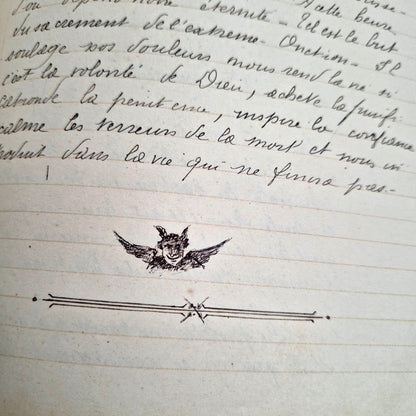 d'où dépend notre éternité - A cette heure
du sacrement de l'extreme-Onction. Il est le but
soulage nos douleurs nous rend la vie si
c'est la volonté de Dieu, achète la purifi
cation de la penitence, inspire la confiance
calme les terreurs de la mort et nous in
troduit dans la vie qui ne finira pas-